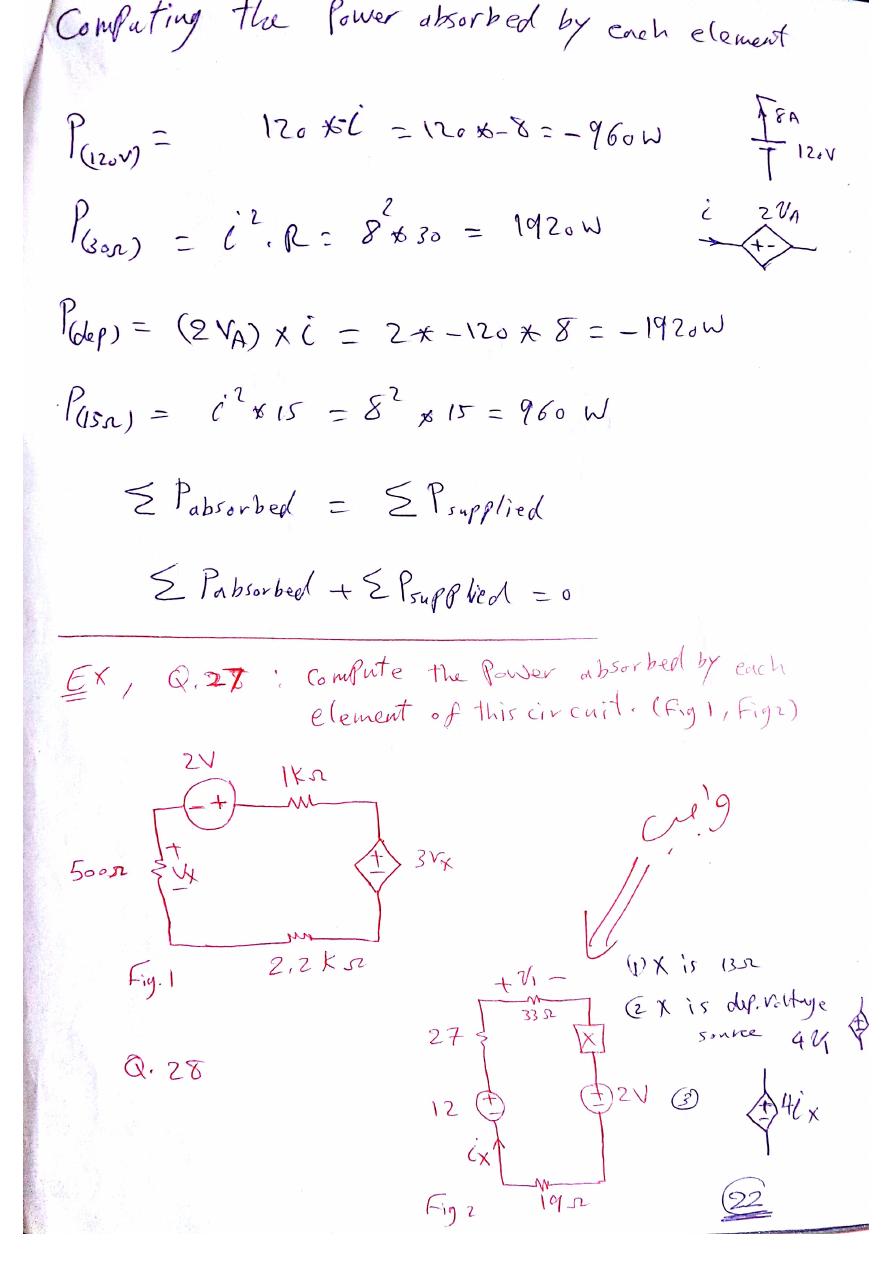 Computing the Power absorbed by each element
P(120V) = 120 * -i = 120 * -8 = -960 W
8A
120V
P(30Ω) = i². R = 8² * 30 = 1920 W
i 2VA
+ -
P(dep) = (2VA) × i = 2 * -120 * 8 = -1920 W
P(15Ω) = i² * 15 = 8² * 15 = 960 W
Σ Pabsorbed = Σ Psupplied
Σ Pabsorbed + Σ Psupplied = 0
Ex, Q.27 : Compute the Power absorbed by each
element of this circuit. (Fig 1, Fig 2)
2V
1KΩ
- +
500Ω
+
Vx
-
+
-
3Vx
2.2 KΩ
Fig. 1
واجب
Q. 28
+ V1 -
33Ω
27
X
12
+
-
+
-
2V
ix
19Ω
Fig 2
(1) X is 13Ω
(2 X is dep. voltage
source 4V1
+
-
③
+
-
4ix
22